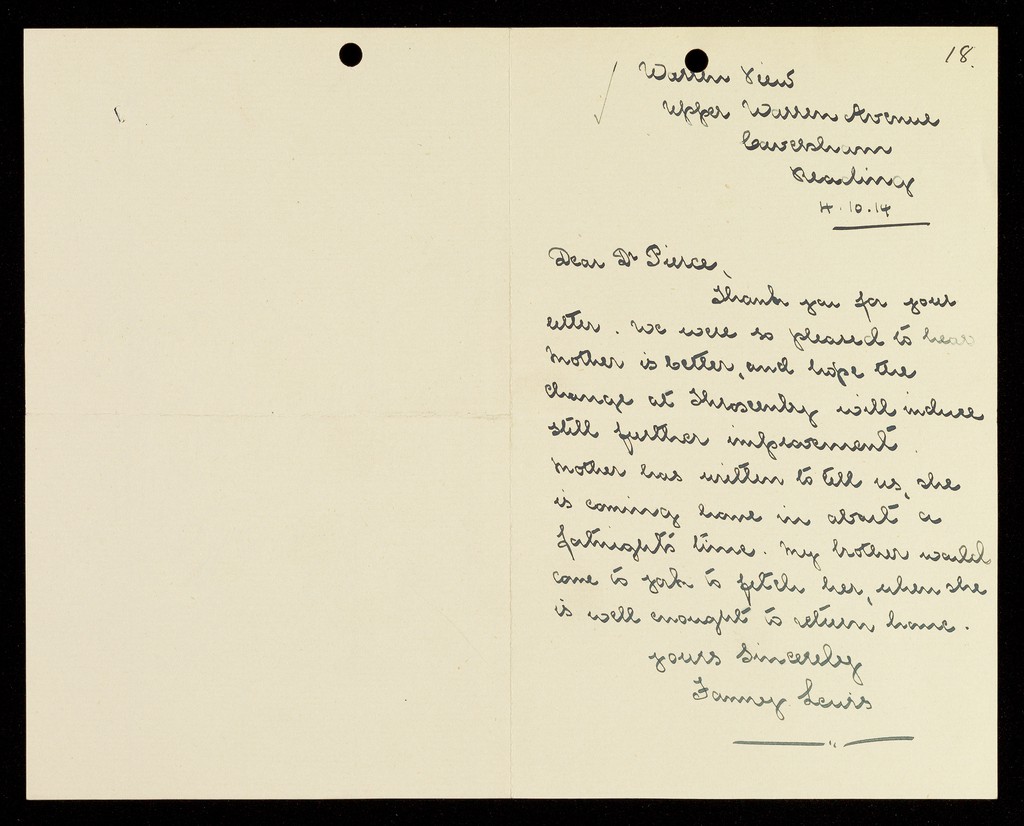 18.
Warren View
Upper Warren Avenue
Caversham
Reading
4.10.14
Dear Dr Pierce,
Thank you for your
letter. We were so pleased to hear
Mother is better, and hope the
change at Throxenby will induce
still further improvement.
Mother has written to tell us, she
is coming home in about a
fotnight's time. My brother would
come to York to fetch her, when she
is well enought to return home.
yours Sincereley
Fanny Lewis